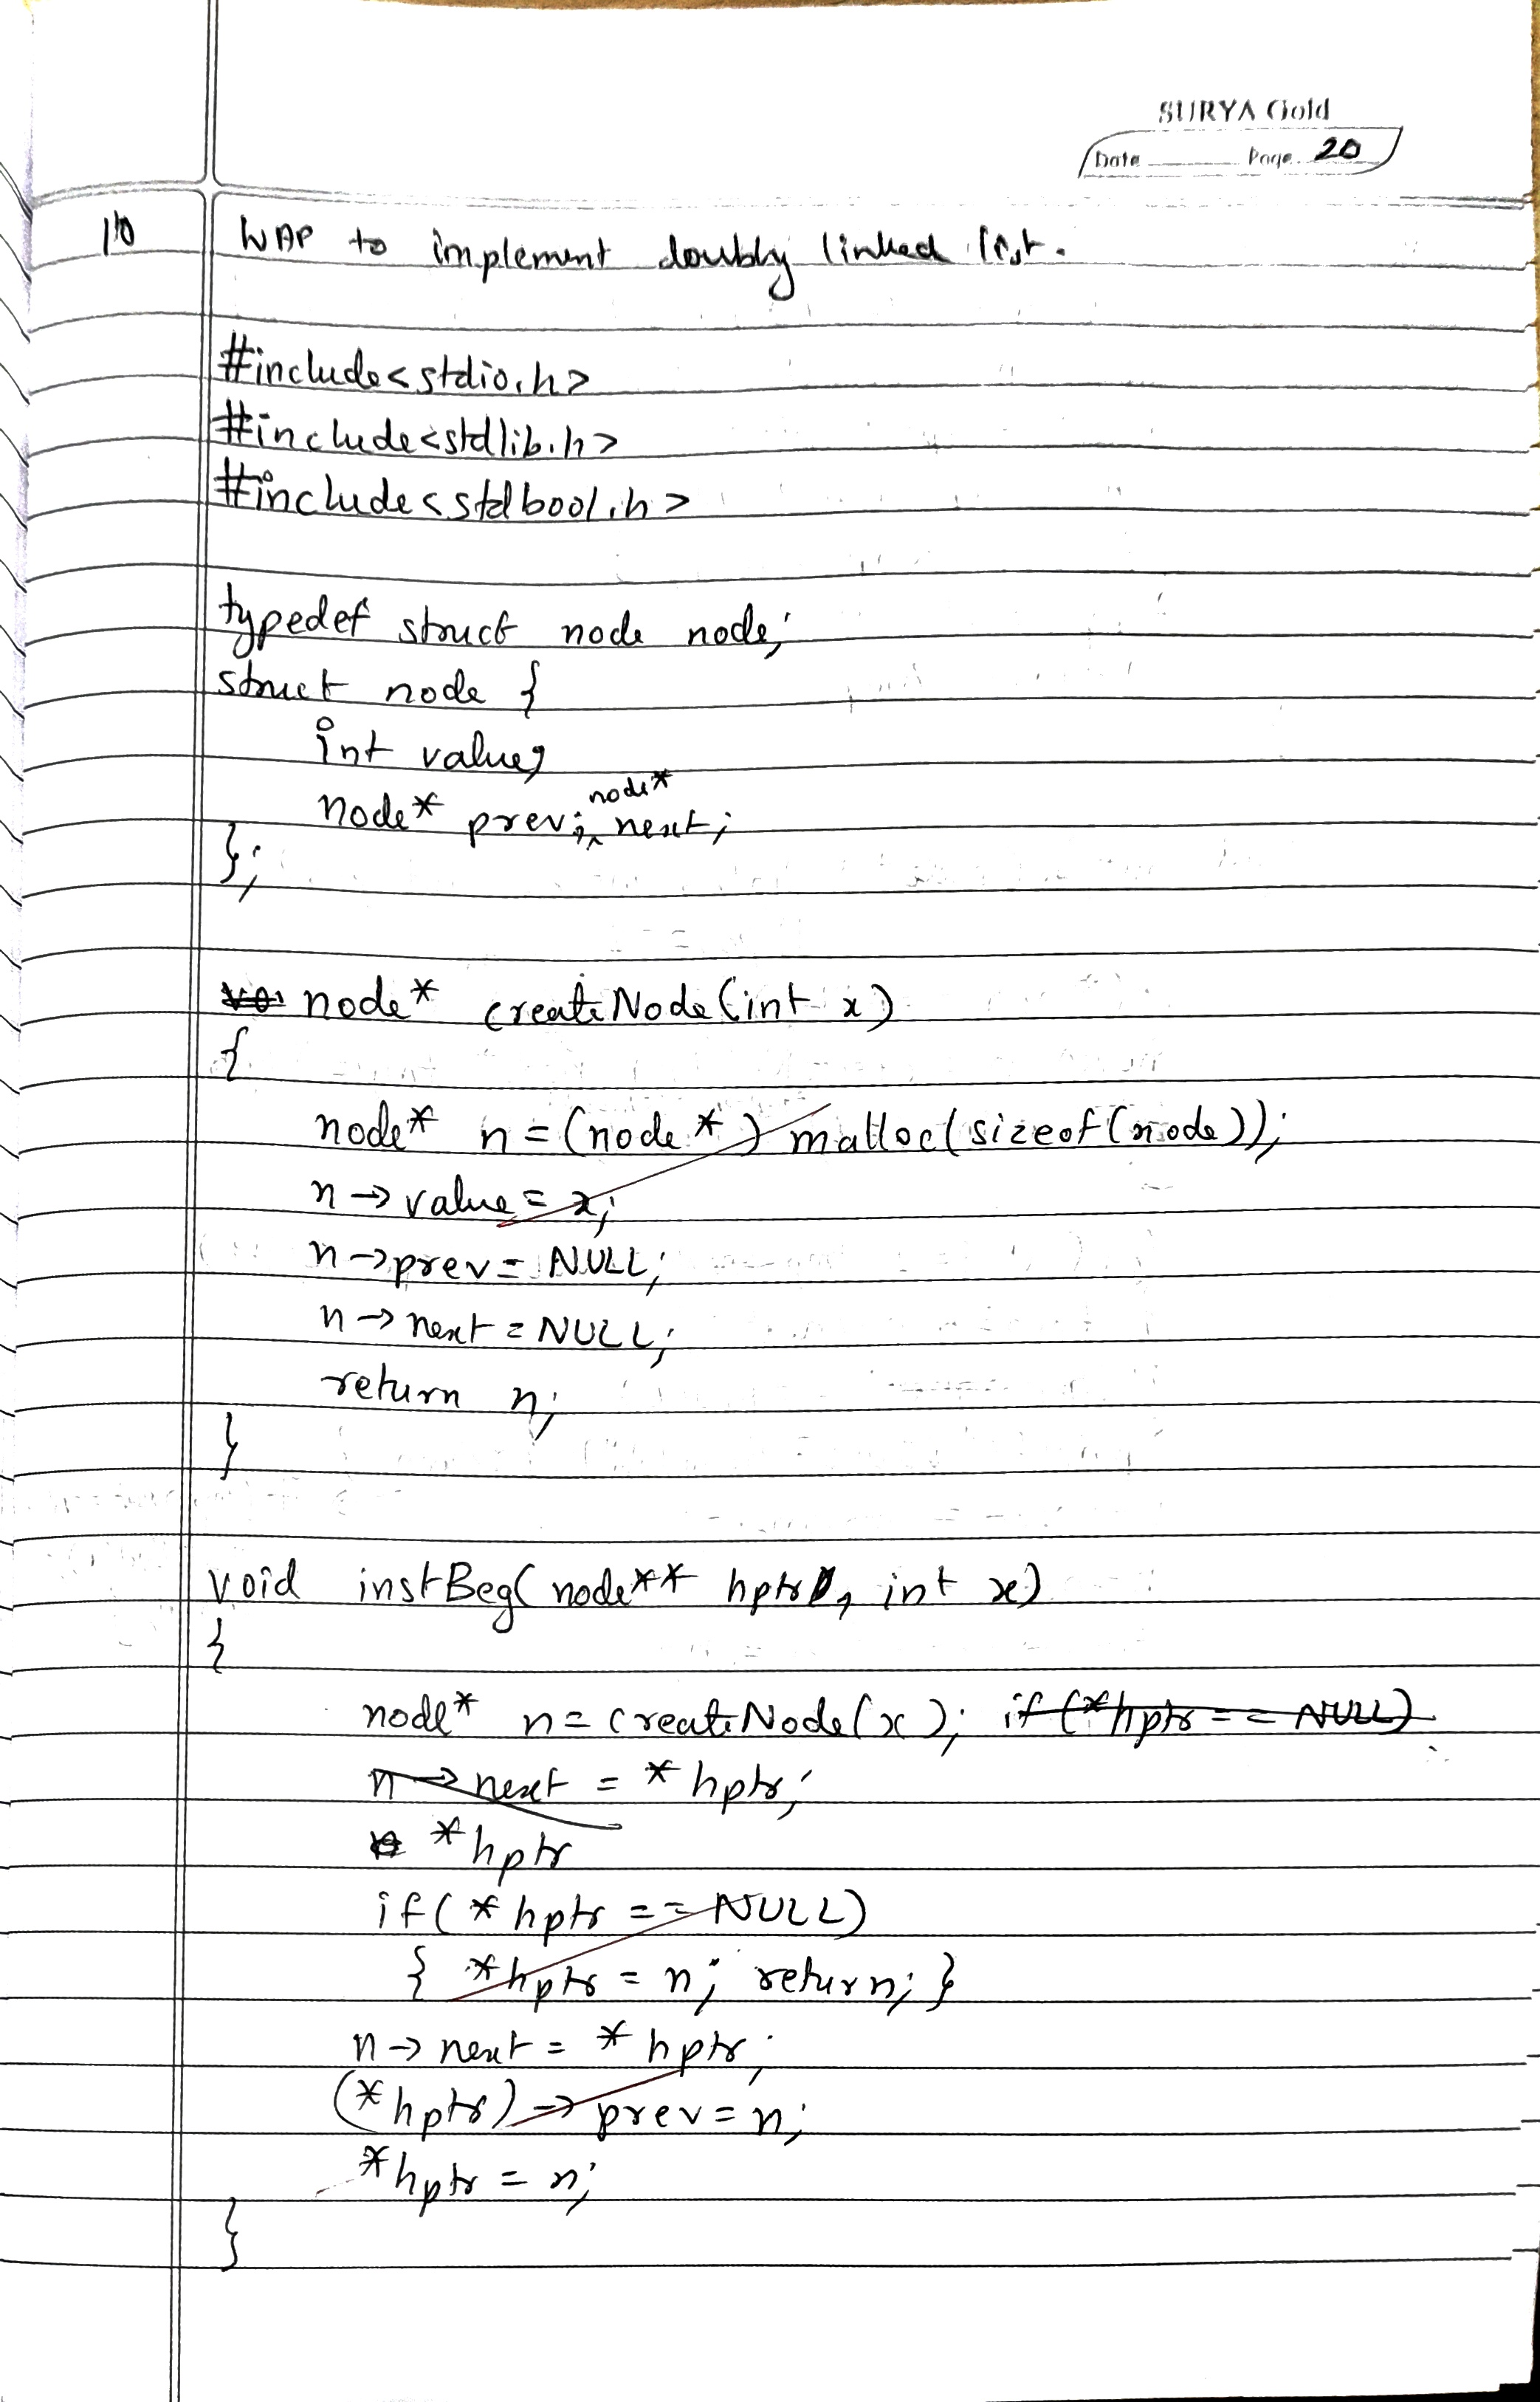 SURYA Gold
Date Page. 20
10 WAP to implement doubly linked list.
#include<stdio.h>
#include<stdlib.h>
#include<stdbool.h>
typedef struct node node;
struct node {
int value;
node* prev; node* next;
};
node* createNode(int x)
{
node* n = (node*) malloc(sizeof(node));
n -> value = x;
n -> prev = NULL;
n -> next = NULL;
return n;
}
void instBeg(node** hptr, int x)
{
node* n = createNode(x); if (*hptr == NULL)
n -> next = *hptr;
*hptr
if (*hptr == NULL)
{ *hptr = n; return; }
n -> next = *hptr;
(*hptr) -> prev = n;
*hptr = n;
}